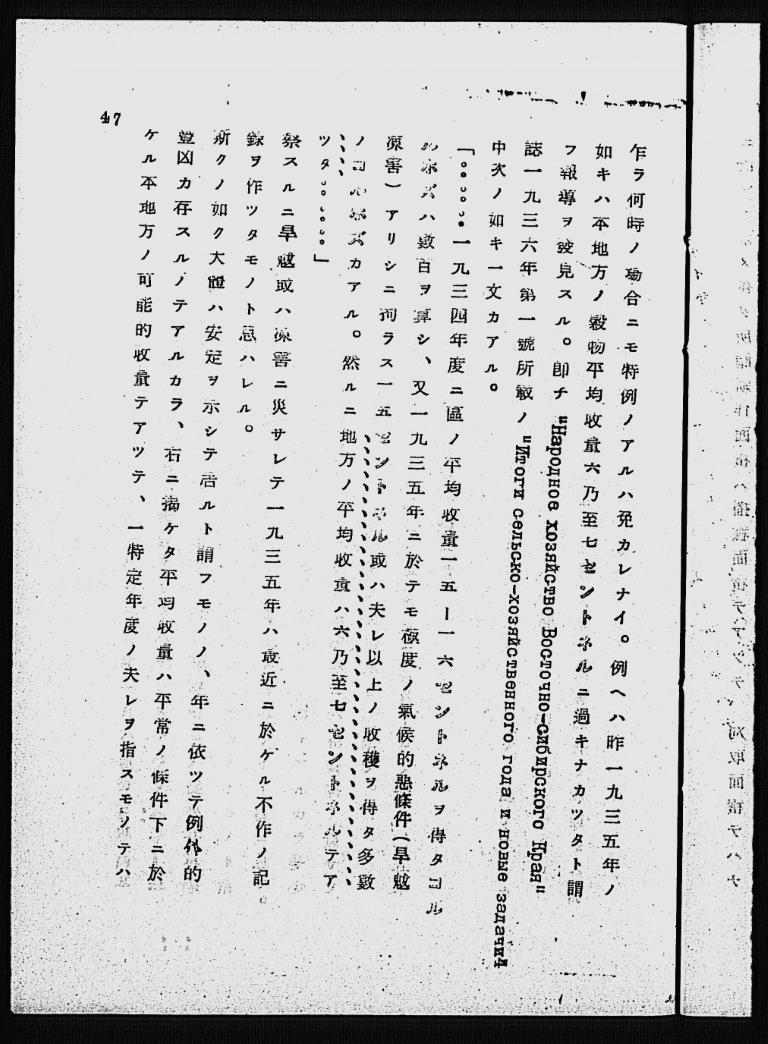 乍ラ何時ノ場合ニモ特例ノアルハ免カレナイ。例ヘハ昨一九三五年ノ
如キハ本地方ノ穀物平均收量六乃至七セントネルニ過キナカツタト謂
フ報導ヲ發見スル。卽チ "Народное хозяйство Восточно-сибирского Края"
誌一九三六年第一號所載ノ "Итоги сельско-хозяйственного года и новые задачи"
中次ノ如キ一文カアル。
「。。。。。一九三四年度ニ區ノ平均收量一五―一六セントネルヲ得タコル
ホズハ數百ヲ算シ、又一九三五年ニ於テモ極度ノ氣候的惡條件(旱魃
凍害)アリシニ拘ラス一五セントネル或ハ夫レ以上ノ收穫ヲ得タ多數
ノコルホズカアル。然ルニ地方ノ平均收量ハ六乃至七セントネルテア
ツタ。。。。。」
祭スルニ旱魃或ハ凍害ニ災サレテ一九三五年ハ最近ニ於ケル不作ノ記
錄ヲ作ツタモノト思ハレル。
斯クノ如ク大體ハ安定ヲ示シテ居ルト謂フモノノ、年ニ依ツテ例外的
豐凶カ存スルノテアルカラ、右ニ揭ケタ平均收量ハ平常ノ條件下ニ於
ケル本地方ノ可能的收量テアツテ、一特定年度ノ夫レヲ指スモノテハ
47